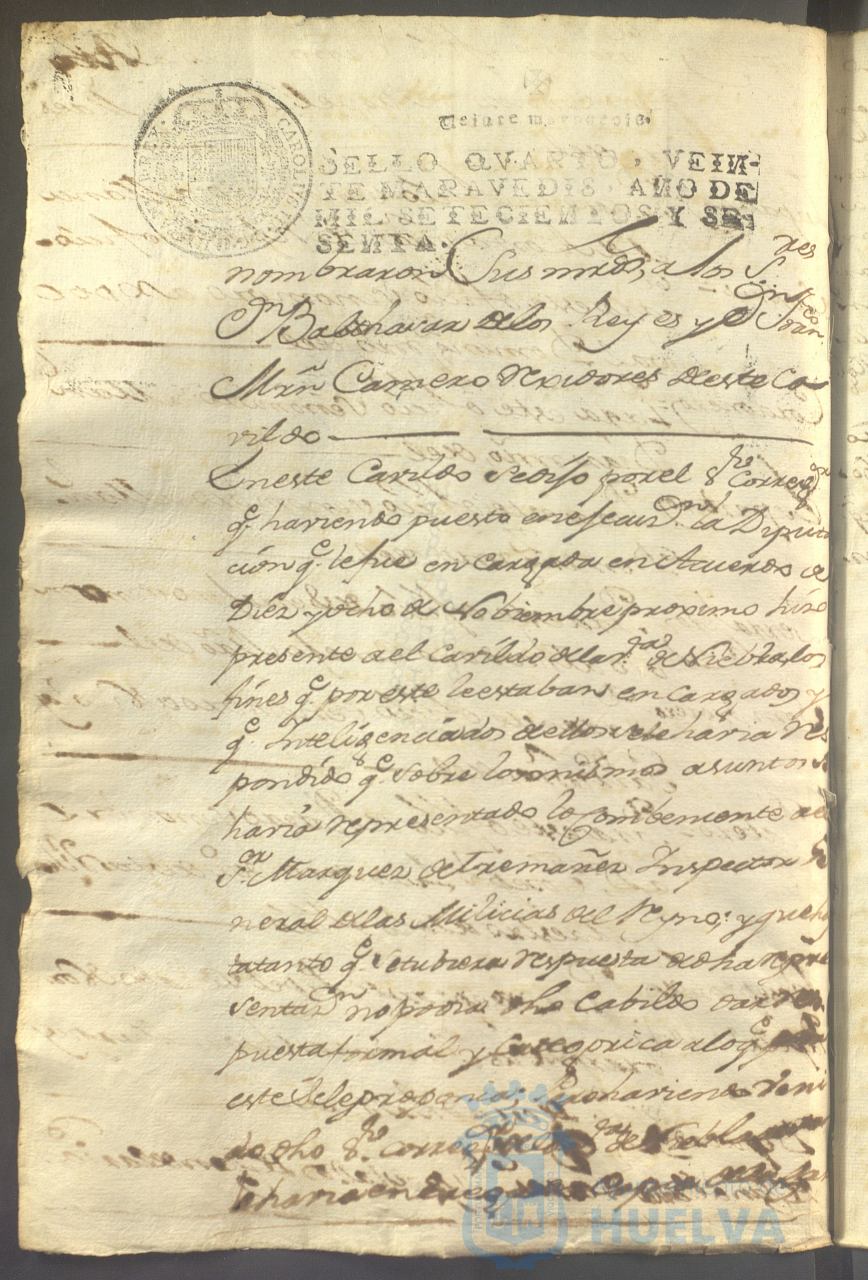 CAROLUS III D G
REX
Veinte maravedis.
SELLO QVARTO, VEIN-
TE MARAVEDIS, AÑO DE
MIL SETECIENTOS Y SE-
SENTA.
nombraron Sus mrds, a los S.res
D.n Balthasar de los Reyes y D.n Fran.co
Mrñ Carrero Rexidores de este Ca
vildo
En este Cavildo se diso por el S.r Correg.or
q.e haviendo puesto en execuz.n la Diputa
cion q.e le fue encargada en Acuerdo de
Diez y ocho de Nobiembre proximo hizo
presente a el Cavildo de la v.a de Niebla los
fines q.e por este le estaban encargados y
q.e Inteligenciados de ellos se le havia Res
pondido q.e sobre los mismos asuntos se
havia representado lo Combeniente a el
S.or Marquez de Tremañez Inspector Ge
neral de las Milicias del Reyno; y que has
ta tanto q.e se tubiera respuesta de dha repre
sentaz.n no podia dho Cabildo dar Res
puesta formal y Categorica a lo q.e por
este se le proponia; haviendo Veni
do dho S.r correg.or de la v.a de Niebla
le havia
HUELVA